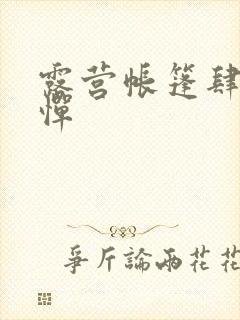 露营帐篷肆
惮
爭斤論兩花花